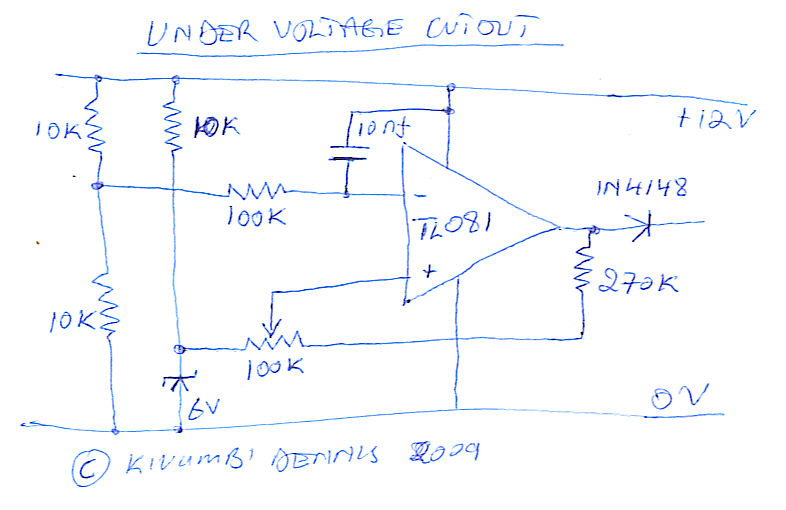 UNDER VOLTAGE CUTOUT
10K
10K
10nf
+12V
100K
-
TL081
1N4148
+
270K
10K
100K
6V
0V
© KIVUMBI DENNIS 2009